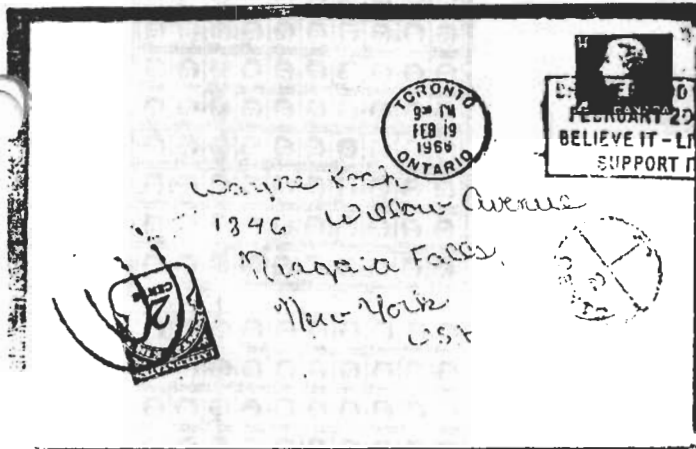 TORONTO
FEB 19
1966
ONTARIO
CANADA
FEBRUARY 20
BELIEVE IT - 
SUPPORT
Wayne Koch
1346 Willow Avenue
Niagara Falls,
New York
USA
2
CENTS